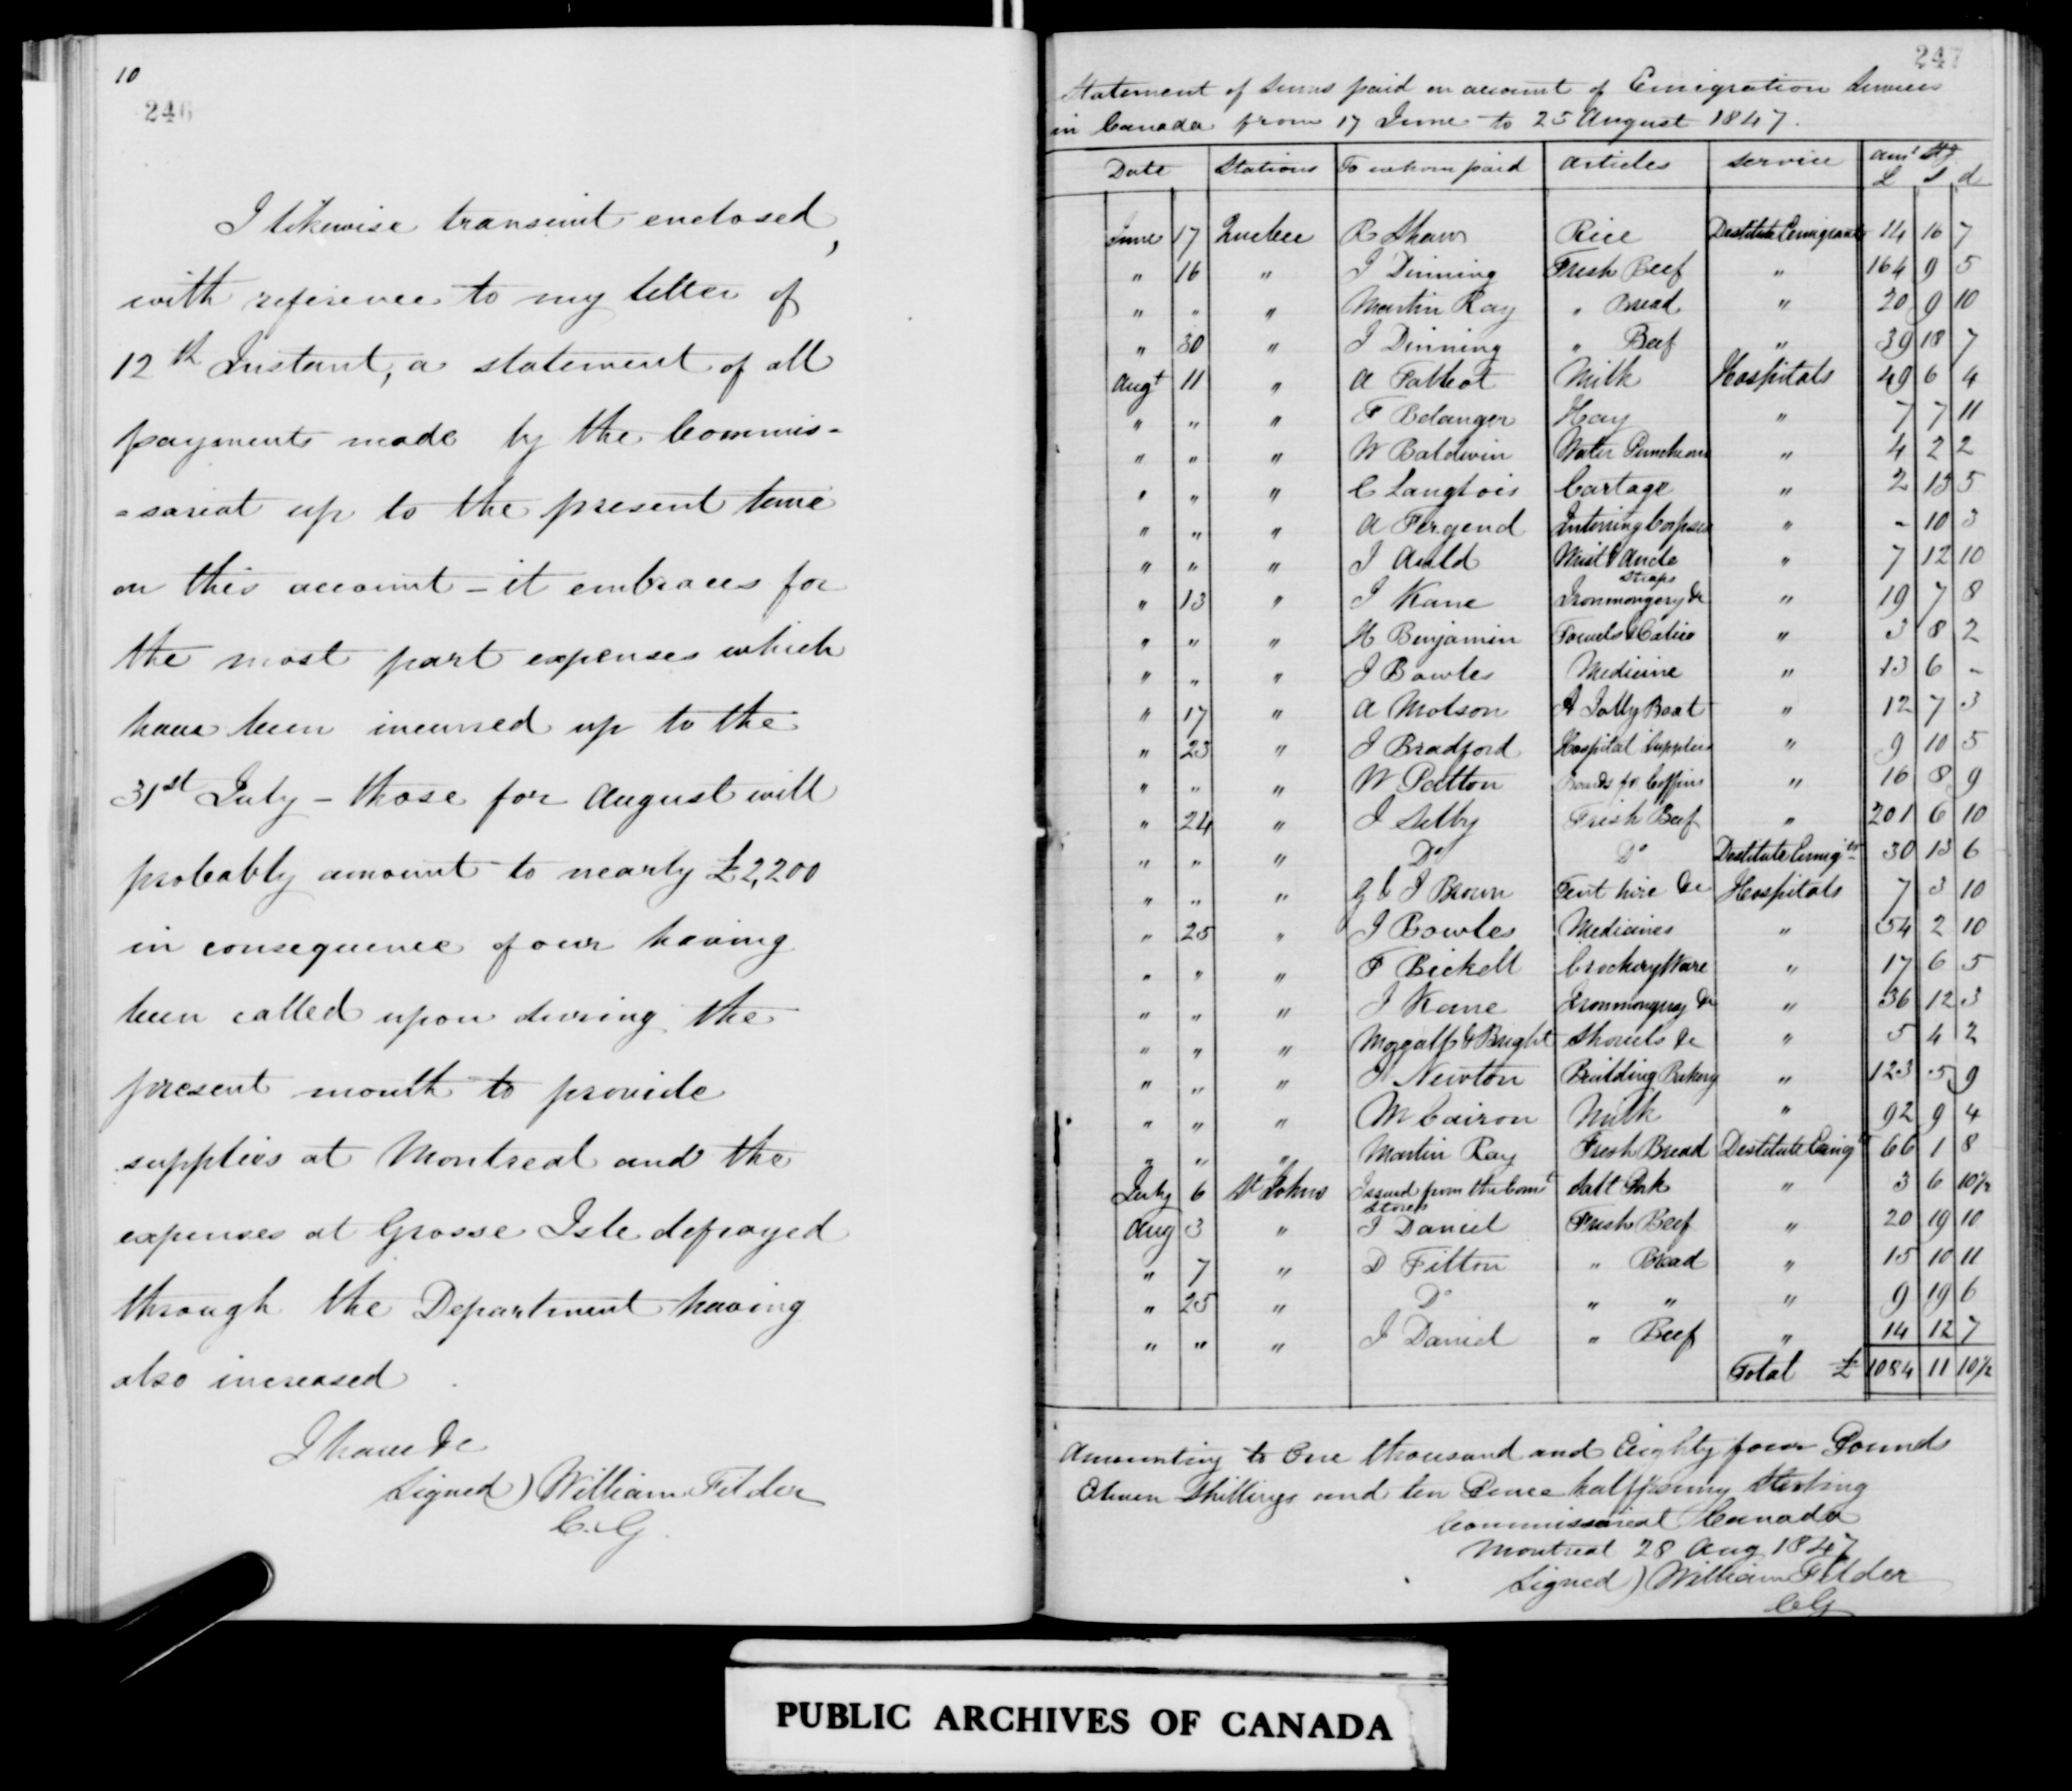 10
246
I likewise transmit enclosed,
with reference to my letter of
12th Instant, a statement of all
payments made by the Commis-
-sariat up to the present time
on this account - it embraces for
the most part expenses which
have been incurred up to the
31st July - those for August will
probably amount to nearly £2,200
in consequence of our having
been called upon during the
present month to provide
supplies at Montreal and the
expenses at Grosse Isle defrayed
through the Department having
also increased.
I have &c
Signed) William Filder
C.G.
247
Statement of Sums paid on account of Emigration Services
in Canada from 17 June to 25 August 1847.
Date Stations To whom paid Articles Service Amt Stg
£ S d
June 17 Quebec R Shaw Rice Destitute Emigrants 14 16 7
" 16 " J Dinning Fresh Beef " 164 9 5
" " " Martin Ray " Bread " 20 9 10
" 30 " J Dinning " Beef " 39 18 7
Augt 11 " A Talbot Milk Hospitals 49 6 4
" " " F Belanger Hay " 7 7 11
" " " W Baldwin Water Puncheons " 4 2 2
" " " C Langlois Cartage " 2 13 5
" " " A Fergend Interring Corpses " - 10 3
" " " J Auld Wrist & Ancle Straps " 7 12 10
" 13 " J Kane Ironmongery &c " 19 7 8
" " " H Benjamin Towels & Calico " 3 8 2
" " " J Bowles Medicine " 13 6 -
" 17 " A Molson A Jolly Boat " 12 7 3
" 23 " J Bradford Hospital Supplies " 9 10 5
" " " W Patton Boards for Coffins " 16 8 9
" 24 " J Selby Fresh Beef " 201 6 10
" " " Do Do Destitute Emigts 30 13 6
" " " G & J Brown Tent hire &c Hospitals 7 3 10
" 25 " J Bowles Medicines " 54 2 10
" " " F Bickell Crockery Ware " 17 6 5
" " " J Kane Ironmongery &c " 36 12 3
" " " & Bright Shovels &c " 5 4 2
" " " J Newton Building Bakery " 123 5 9
" " " M Cairon Milk " 92 9 4
" " " Martin Ray Fresh Bread Destitute Emigt 66 1 8
July 6 St Johns Issued from the Comt Stores Salt Pork " 3 6 10½
Aug 3 " J Daniel Fresh Beef " 20 19 10
" 7 " D Filton " Bread " 15 10 11
" 25 " Do " " " 9 19 6
" " " J Daniel " Beef " 14 12 7
Total £ 1084 11 10½
Amounting to One thousand and Eighty four Pounds
Eleven Shillings and ten Pence halfpenny Sterling
Commissariat Canada
Montreal 28 Aug 1847
Signed) William Filder
CG
PUBLIC ARCHIVES OF CANADA